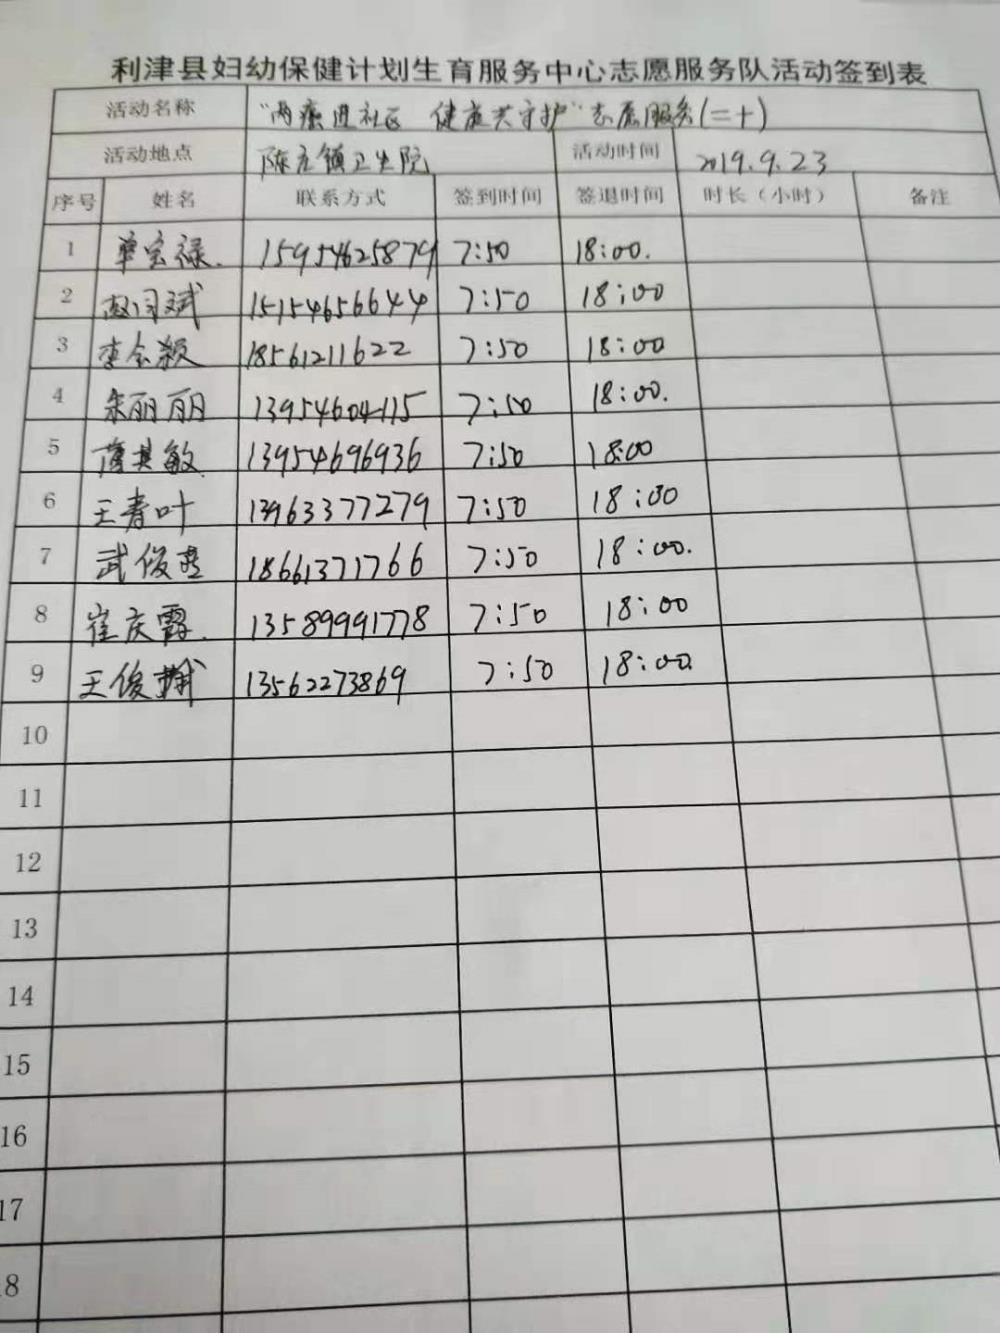 利津县妇幼保健计划生育服务中心志愿服务队活动签到表
活动名称 "两癌进社区 健康共守护"志愿服务(二十)
活动地点 陈庄镇卫生院 活动时间 2019.9.23
序号 姓名 联系方式 签到时间 签退时间 时长（小时） 备注
1 单宝禄. 15954625879 7:50 18:00.
2 赵闫斌 15154656644 7:50 18:00
3 李会颖 18561211622 7:50 18:00
4 朱丽丽 13954604115 7:50 18:00.
5 薄其敏 13954696936 7:50 18:00
6 王青叶 13963377279 7:50 18:00
7 武俊燕 18661371766 7:50 18:00.
8 崔庆霞. 13589991778 7:50 18:00
9 王俊 13562273869 7:50 18:00.
10
11
12
13
14
15
16
17
18